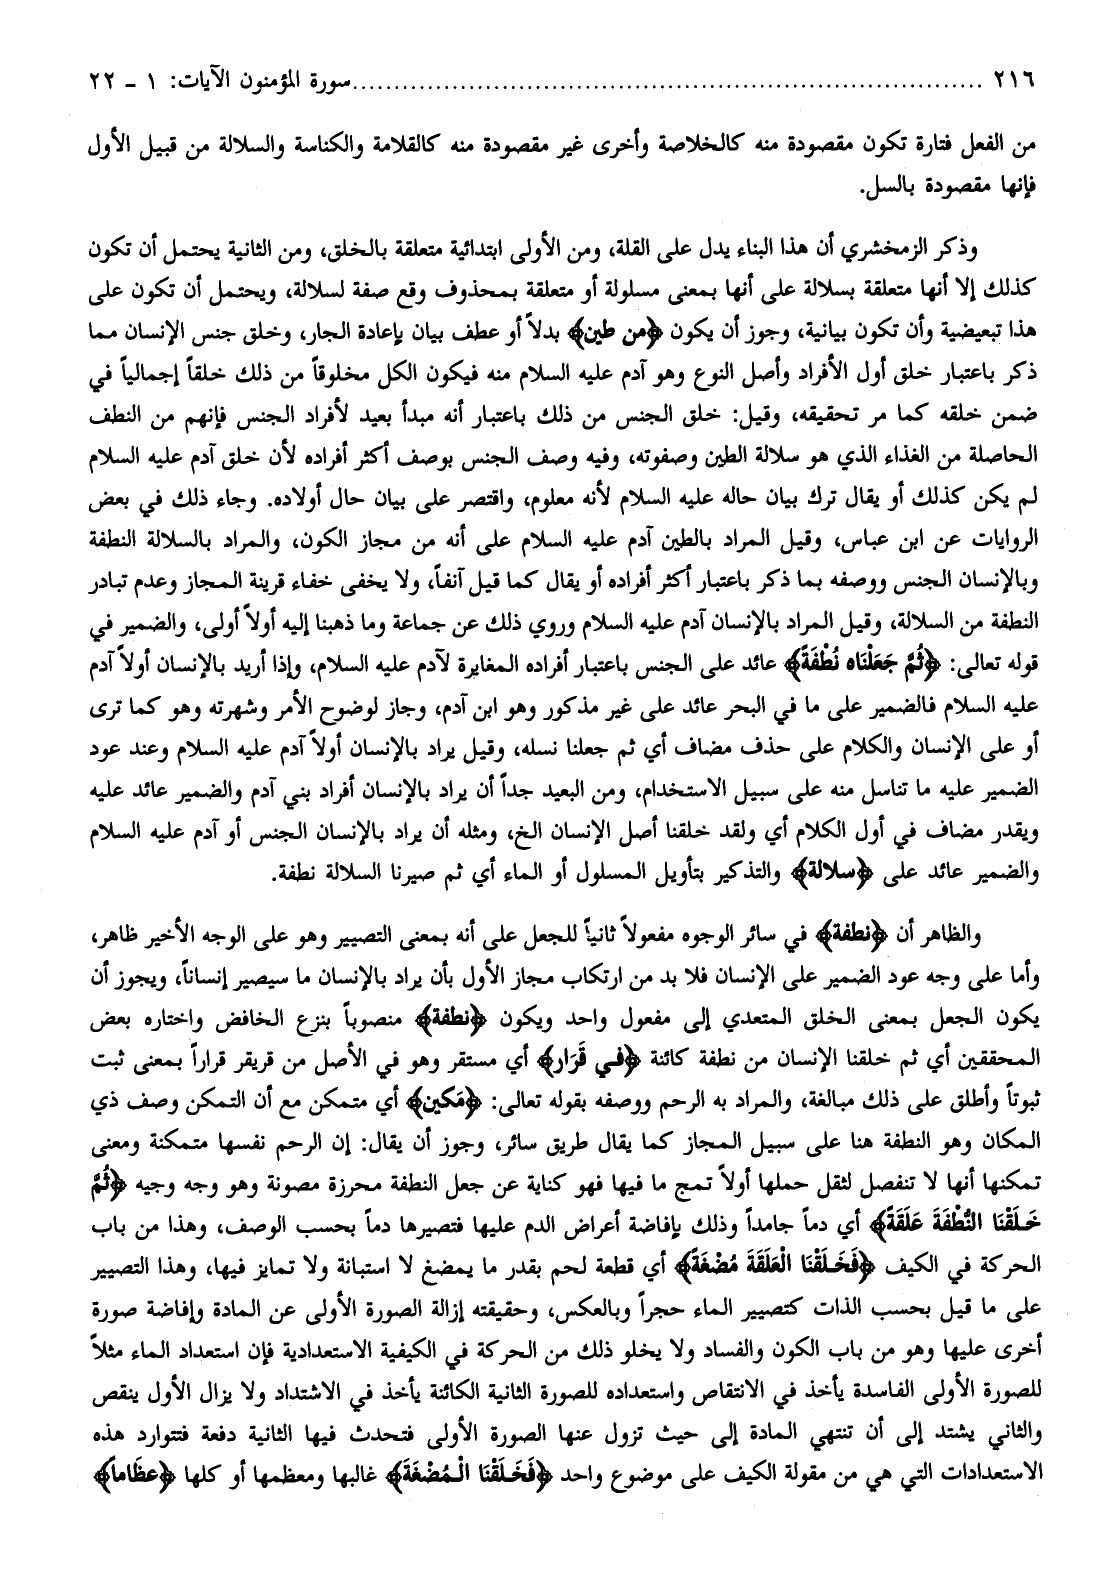 ٢١٦ ........................................................................ سورة المؤمنون الآيات: ١ - ٢٢
من الفعل فتارة تكون مقصودة منه كالخلاصة وأخرى غير مقصودة منه كالقلامة والكناسة والسلالة من قبيل الأول
فإنها مقصودة بالسل.
وذكر الزمخشري أن هذا البناء يدل على القلة، ومن الأولى ابتدائية متعلقة بالخلق، ومن الثانية يحتمل أن تكون
كذلك إلا أنها متعلقة بسلالة على أنها بمعنى مسلولة أو متعلقة بمحذوف وقع صفة لسلالة، ويحتمل أن تكون على
هذا تبعيضية وأن تكون بيانية، وجوز أن يكون ﴿من طين﴾ بدلاً أو عطف بيان بإعادة الجار، وخلق جنس الإنسان مما
ذكر باعتبار خلق أول الأفراد وأصل النوع وهو آدم عليه السلام منه فيكون الكل مخلوقاً من ذلك خلقاً إجمالياً في
ضمن خلقه كما مر تحقيقه، وقيل: خلق الجنس من ذلك باعتبار أنه مبدأ بعيد لأفراد الجنس فإنهم من النطف
الحاصلة من الغذاء الذي هو سلالة الطين وصفوته، وفيه وصف الجنس بوصف أكثر أفراده لأن خلق آدم عليه السلام
لم يكن كذلك أو يقال ترك بيان حاله عليه السلام لأنه معلوم، واقتصر على بيان حال أولاده. وجاء ذلك في بعض
الروايات عن ابن عباس، وقيل المراد بالطين آدم عليه السلام على أنه من مجاز الكون، والمراد بالسلالة النطفة
وبالإنسان الجنس ووصفه بما ذكر باعتبار أكثر أفراده أو يقال كما قيل آنفاً، ولا يخفى خفاء قرينة المجاز وعدم تبادر
النطفة من السلالة، وقيل المراد بالإنسان آدم عليه السلام وروي ذلك عن جماعة وما ذهبنا إليه أولاً أولى، والضمير في
قوله تعالى: ﴿ثُمَّ جَعَلْنَاه نُطْفَةً﴾ عائد على الجنس باعتبار أفراده المغايرة لآدم عليه السلام، وإذا أريد بالإنسان أولاً آدم
عليه السلام فالضمير على ما في البحر عائد على غير مذكور وهو ابن آدم، وجاز لوضوح الأمر وشهرته وهو كما ترى
أو على الإنسان والكلام على حذف مضاف أي ثم جعلنا نسله، وقيل يراد بالإنسان أولاً آدم عليه السلام وعند عود
الضمير عليه ما تناسل منه على سبيل الاستخدام، ومن البعيد جداً أن يراد بالإنسان أفراد بني آدم والضمير عائد عليه
ويقدر مضاف في أول الكلام أي ولقد خلقنا أصل الإنسان الخ، ومثله أن يراد بالإنسان الجنس أو آدم عليه السلام
والضمير عائد على ﴿سلالة﴾ والتذكير بتأويل المسلول أو الماء أي ثم صيرنا السلالة نطفة.
والظاهر أن ﴿نطفة﴾ في سائر الوجوه مفعولاً ثانياً للجعل على أنه بمعنى التصيير وهو على الوجه الأخير ظاهر،
وأما على وجه عود الضمير على الإنسان فلا بد من ارتكاب مجاز الأول بأن يراد بالإنسان ما سيصير إنساناً، ويجوز أن
يكون الجعل بمعنى الخلق المتعدي إلى مفعول واحد ويكون ﴿نطفة﴾ منصوباً بنزع الخافض واختاره بعض
المحققين أي ثم خلقنا الإنسان من نطفة كائنة ﴿في قَرَار﴾ أي مستقر وهو في الأصل من قريقر قراراً بمعنى ثبت
ثبوتاً وأطلق على ذلك مبالغة، والمراد به الرحم ووصفه بقوله تعالى: ﴿مَكين﴾ أي متمكن مع أن التمكن وصف ذي
المكان وهو النطفة هنا على سبيل المجاز كما يقال طريق سائر، وجوز أن يقال: إن الرحم نفسها متمكنة ومعنى
تمكنها أنها لا تنفصل لثقل حملها أولاً تمج ما فيها فهو كناية عن جعل النطفة محرزة مصونة وهو وجه وجيه ﴿ثُمَّ
خَلَقْنَا النُّطْفَةَ عَلَقَةً﴾ أي دماً جامداً وذلك بإفاضة أعراض الدم عليها فتصيرها دماً بحسب الوصف، وهذا من باب
الحركة في الكيف ﴿فَخَلَقْنَا الْعَلَقَةَ مُضْغَةً﴾ أي قطعة لحم بقدر ما يمضغ لا استبانة ولا تمايز فيها، وهذا التصيير
على ما قيل بحسب الذات كتصيير الماء حجراً وبالعكس، وحقيقته إزالة الصورة الأولى عن المادة وإفاضة صورة
أخرى عليها وهو من باب الكون والفساد ولا يخلو ذلك من الحركة في الكيفية الاستعدادية فإن استعداد الماء مثلاً
للصورة الأولى الفاسدة يأخذ في الانتقاص واستعداده للصورة الثانية الكائنة يأخذ في الاشتداد ولا يزال الأول ينقص
والثاني يشتد إلى أن تنتهي المادة إلى حيث تزول عنها الصورة الأولى فتحدث فيها الثانية دفعة فتتوارد هذه
الاستعدادات التي هي من مقولة الكيف على موضوع واحد ﴿فَخَلَقْنَا الْمُضْغَةَ﴾ غالبها ومعظمها أو كلها ﴿عظَاماً﴾